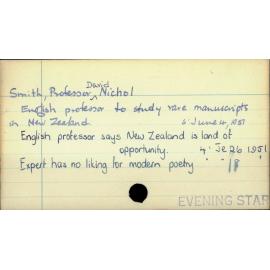 David
Smith, Professor Nichol
English professor to study rare manuscripts
in New Zealand 6 June 4, 1951
English professor says New Zealand is land of
opportunity. 4 Je 26 1951
Expert has no liking for modern poetry " 18 "
EVENING STAR